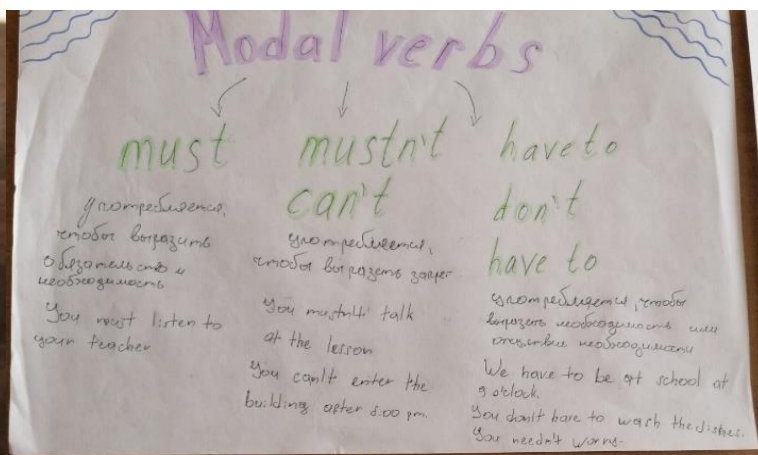 Modal verbs
must
употребляется,
чтобы выразить
обязательство и
необходимость
You must listen to
your teacher
mustn't
can't
употребляется,
чтобы выразить запрет
You mustn't talk
at the lesson
You can't enter the
building after 8:00 pm.
have to
don't
have to
употребляется, чтобы
выразить необходимость или
отсутствие необходимости
We have to be at school at
9 o'clock.
You don't have to wash the dishes.
You needn't